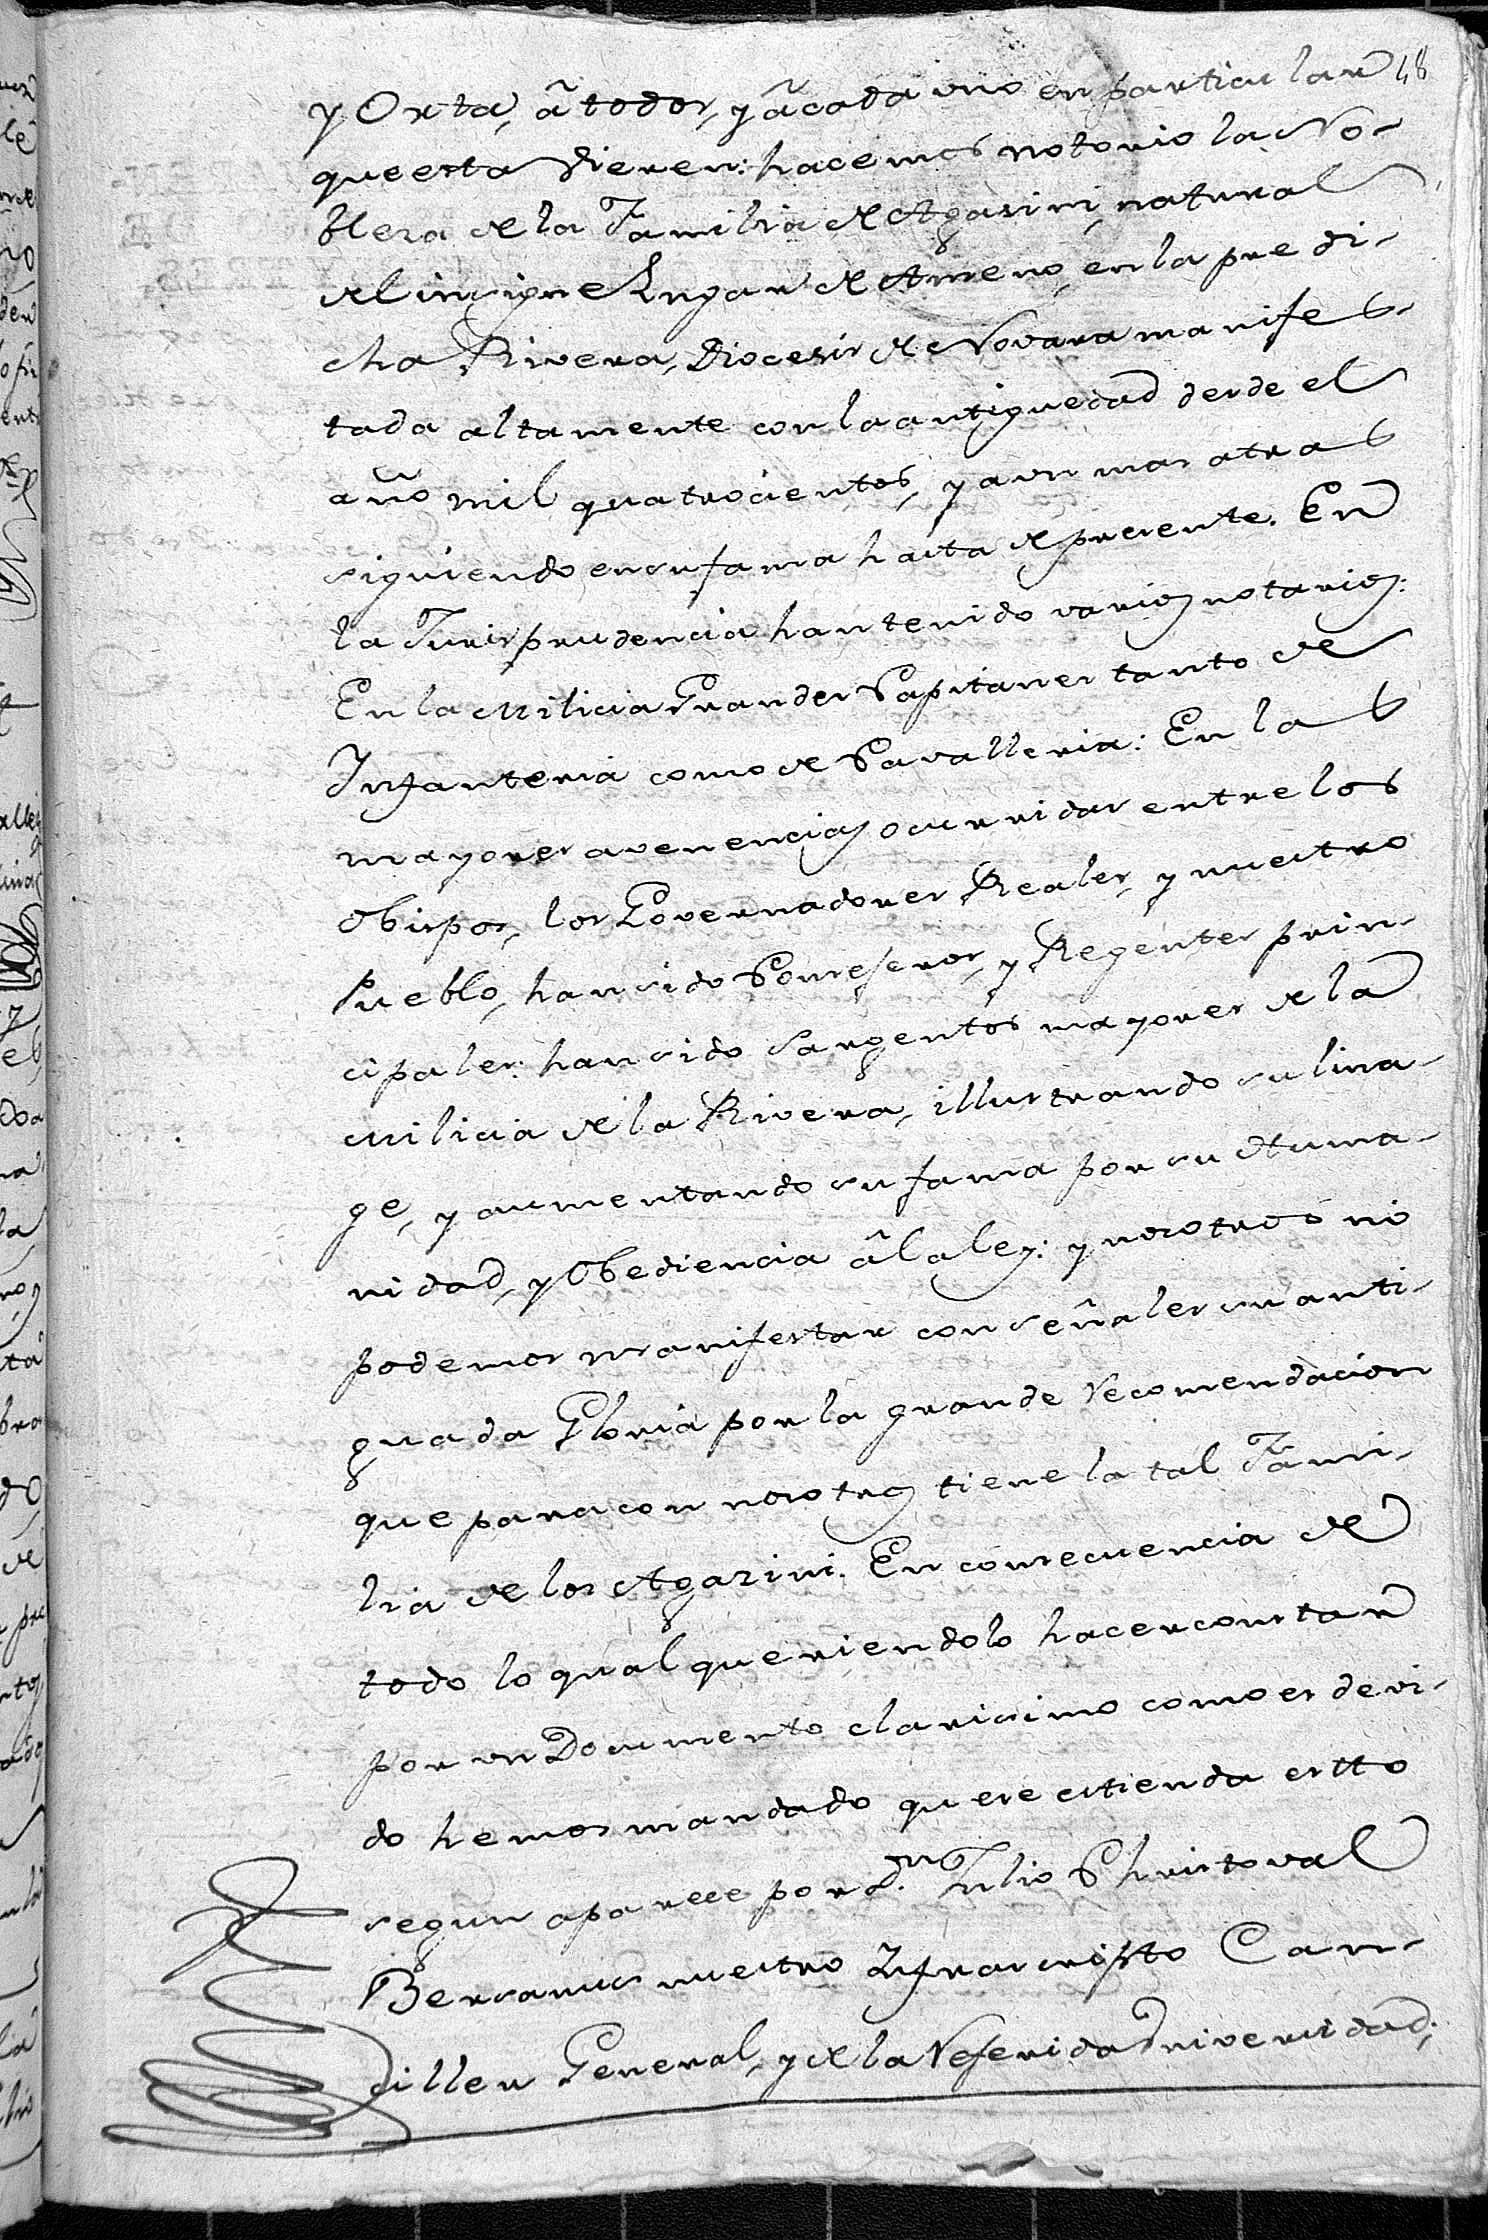 48
y Orta, â todos, y âcada uno en particular
que esta vieren: hacemos notorio la No-
bleza de la Familia de Agazini, natural
del insigne Lugar de Ameno, en la predi-
cha Rivera, Diocesis de Novara manifes-
tada altamente con la antiguedad desde el
año mil quatrocientos, y aun mas atras
siguiendo en su fama hasta el presente. En
la Jurisprudencia han tenido varios notarios:
En la Milicia Grandes Capitanes tanto de
Infanteria como de Cavalleria: En las
mayores avenencias ocurridas entre los
Obispos, los Governadores Reales, y nuestro
Pueblo, han sido Consejeros, y Regentes prin-
cipales: han sido Sargentos mayores de la
Milicia de la Rivera, illustrando su lina-
ge, y aumentando su fama por su Huma-
nidad, y Obediencia â la ley: y nosotros no
podemos manifestar con señales su anti-
guada Gloria por la grande recomendacion
que para con nosotros tiene la tal Fami-
lia de los Agazini. En consecuencia de
todo lo qual queriendolo hacer constar
por un Documento clarisimo como es devi-
do hemos mandado que se estienda estto
segun aparece por Dn. Julio Christoval
Bersanus nuestro Infrascripto Can-
ciller General, y de la referida Universidad;